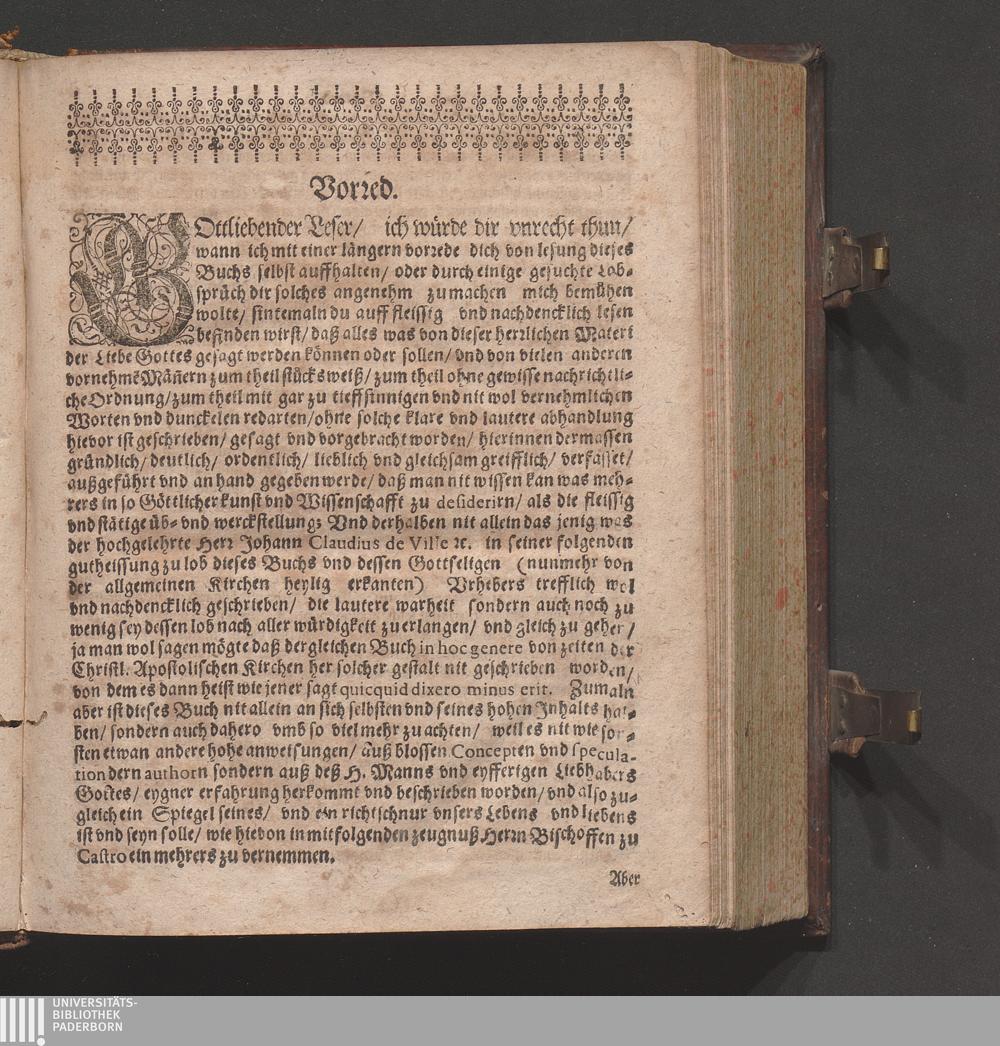 Vorred.
GOttliebender Leser/ ich würde dir vnrecht thun/
wann ich mit einer längern vorrede dich von lesung dieses
Buchs selbst auffhalten/ oder durch einige gesuchte Lob-
sprüch dir solches angenehm zumachen mich bemühen
wolte/ sintemaln du auff fleissig vnd nachdencklich lesen
befinden wirst/ daß alles was von dieser herrlichen Materi
der Liebe Gottes gesagt werden können oder sollen/ vnd von vielen anderen
vornehmē Mäñern zum theil stücksweiß/ zum theil ohne gewisse nachrichtli-
che Ordnung/ zum theil mit gar zu tieffsinnigen vnd nit wol vernehmlichen
Worten vnd dunckelen redarten/ ohne solche klare vnd lautere abhandlung
hievor ist geschrieben/ gesagt vnd vorgebracht worden/ hierinnen dermassen
gründlich/ deutlich/ ordentlich/ lieblich vnd gleichsam greifflich/ verfasset/
außgeführt vnd an hand gegeben werde/ daß man nit wissen kan was meh-
rers in so Göttlicher kunst vnd Wissenschafft zu desiderirn/ als die fleissig
vnd stätige üb- vnd werckstellung; Vnd derhalben nit allein das jenig was
der hochgelehrte Herr Johann Claudius de Ville ꝛc. in seiner folgenden
gutheissung zu lob dieses Buchs vnd dessen Gottseligen (nunmehr von
der allgemeinen Kirchen heylig erkanten) Vrhebers trefflich wol
vnd nachdencklich geschrieben/ die lautere warheit sondern auch noch zu
wenig sey dessen lob nach aller würdigkeit zu erlangen/ vnd gleich zu gehen/
ja man wol sagen mögte daß dergleichen Buch in hoc genere von zeiten der
Christl. Apostolischen Kirchen her solcher gestalt nit geschrieben worden/
von dem es dann heist wie jener sagt quicquid dixero minus erit. Zumaln
aber ist dieses Buch nit allein an sich selbsten vnd seines hohen Inhalts hal-
ben/ sondern auch dahero vmb so viel mehr zu achten/ weil es nit wie son-
sten etwan andere hohe anweisungen/ auß blossen Concepten vnd specula-
tion dern authorn sondern auß deß H. Manns vnd eyfferigen Liebhabers
Gottes/ eygner erfahrung herkommt vnd beschrieben worden/ vnd also zu-
gleich ein Spiegel seines/ vnd ein richtschnur vnsers Lebens vnd liebens
ist vnd seyn solle/ wie hievon in mitfolgenden zeugnuß Herrn Bischoffen zu
Castro ein mehrers zu vernemmen.
Aber
UNIVERSITÄTS-
BIBLIOTHEK
PADERBORN